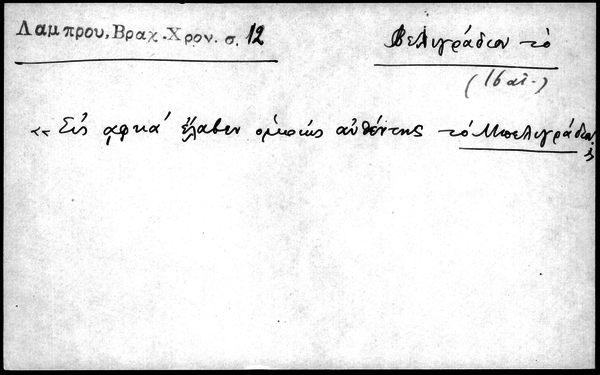 Λαμπρου, Βραχ. Χρον. σ. 12
Βελιγράδιον τὸ
(16 αἰ.)
«Εἰς αφκα´ ἔλαβεν ὁμοίως αὐθέντης τὸ Μπελιγράδιον»